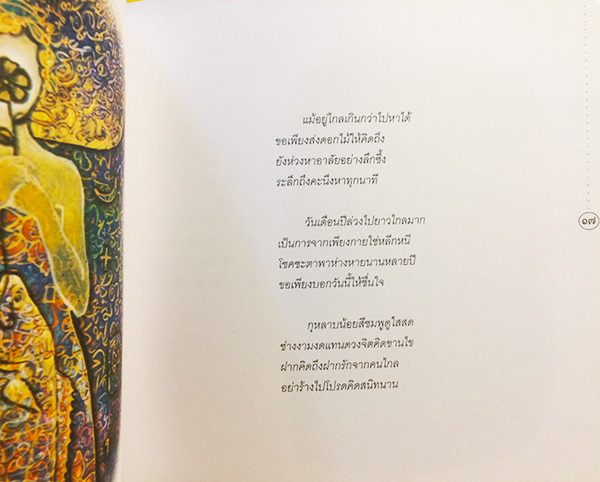 แม้อยู่ไกลเกินกว่าไปหาได้
ขอเพียงส่งดอกไม้ให้คิดถึง
ยังห่วงหาอาลัยอย่างลึกซึ้ง
ระลึกถึงคะนึงหาทุกนาที
วันเดือนปีล่วงไปยาวไกลมาก
เป็นการจากเพียงกายใช่หลีกหนี
โชคชะตาพาห่างหายนานหลายปี
ขอเพียงบอกวันนี้ให้ชื่นใจ
กุหลาบน้อยสีชมพูดูใสสด
ช่างงามงดแทนดวงจิตคิดขานไข
ฝากคิดถึงฝากรักจากคนไกล
อย่าร้างไปโปรดคิดสนิทนาน
๑๗